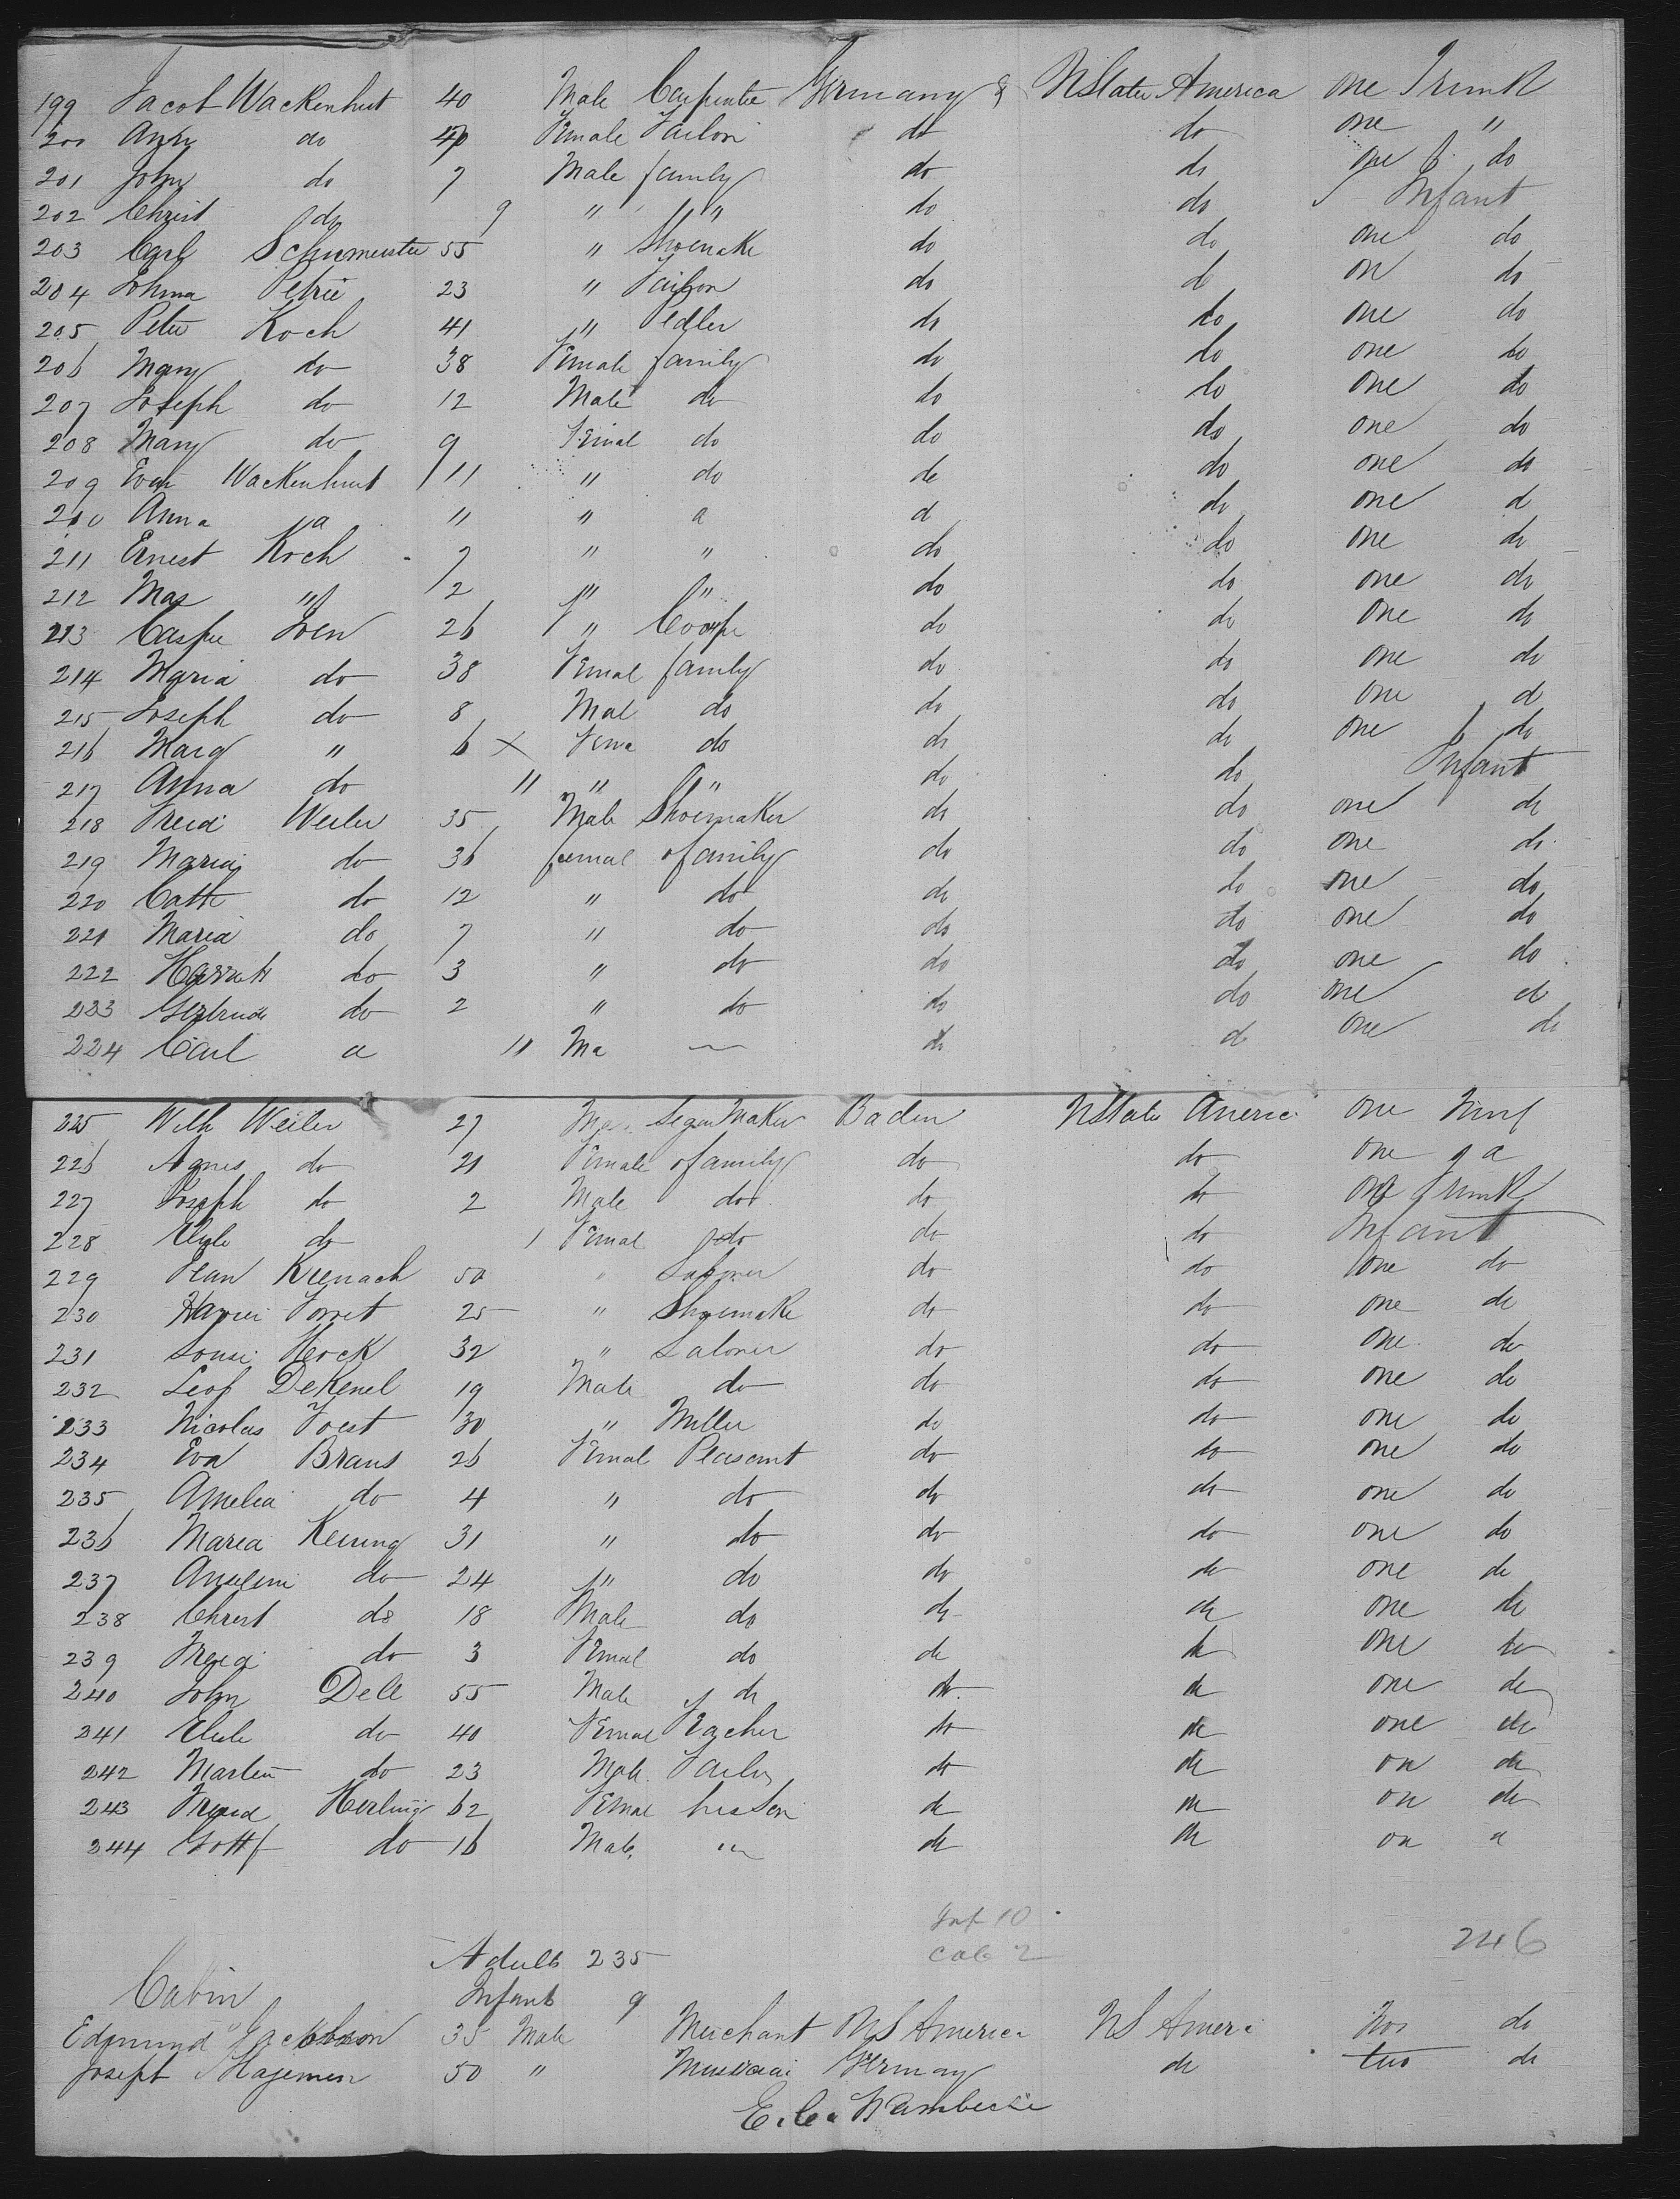 199 Jacob Wackenhut 40 Male Carpenter Germany & UState America one Trunk
200 Ann do 40 Female Tailor do do one "
201 John do 7 Male family do do one do
202 Christ do 9 " " do do Infant
203 Carl Schumeister 55 " Shoemake do do one do
204 Petrie 23 " Tailor do do on do
205 Peter Koch 41 " Pedler do do one do
206 Mary do 38 Female family do do one do
207 Joseph do 12 Male do do do one do
208 Mary do 9 Femal do do do one do
209 Eva Wackenhut 11 " do do do one do
210 Anna a 11 " a d do one d
211 Ernest Koch 7 " " do do one do
212 Max " 2 " " do do one do
213 Casper 26 " Coope do do one do
214 Maria do 38 Femal family do do one do
215 Joseph do 8 Mal do do do one d
216 Marg " 6 x Fema do do do one do
217 Anna do 11 " " do do Infant
218 Fredi Weiler 35 Male Shoemaker do do one do
219 Maria do 36 femal family do do one do
220 Cath do 12 " do do do one do
221 Maria do 7 " do do do one do
222 do 3 " do do do one do
223 Gertrude do 2 " do do do one do
224 Carl a 11 Ma do do one do
225 Wilh Weiler 27 Ma Segar Maker Baden UState Americ one
226 Agnes do 21 Female family do do one
227 Joseph do 2 Male do do do one Trunk
228 do 1 Femal do do do Infant
229 Jean Kienach 50 " Laborer do do one do
230 25 " Shoemake do do one do
231 Louise Hock 32 " Laborer do do one do
232 Leop DeKenel 19 Male do do do one do
233 Nicolas Joest 30 " Miller do do one do
234 Eva Braus 26 Femal Peasant do do one do
235 Amelia do 4 " do do do one do
236 Maria 31 " do do do one do
237 do 24 " do do do one do
238 Christ do 18 Male do do do one do
239 do 3 Femal do do do one do
240 John Dell 55 Male do do do one do
241 do 40 Femal do do one do
242 Martin do 23 Male Tailor do do on do
243 62 Femal his Son do do on do
244 Gottf do 16 Male " do do on a
Inf 10
Cab 2 246
Adults 235
Cabin Infants 9
Edmund Jackson 35 Male Merchant US America US Ameri two do
Joseph Hagemen 50 " Musician Germany do two do